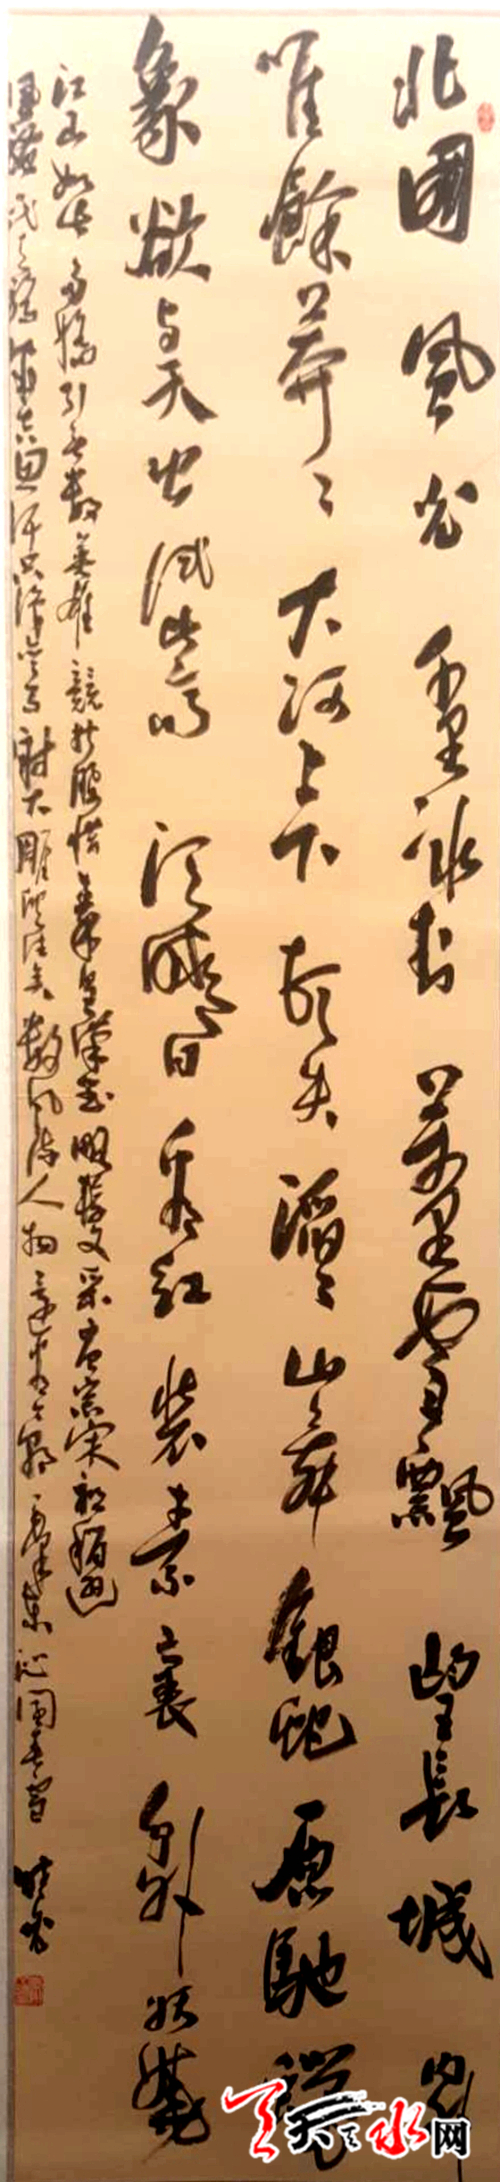 北國風光千里冰封萬里雪飄望長城內外
唯餘莽々大河上下頓失滔々山舞銀蛇原馳蠟
象欲与天公試比高須晴日看紅裝素裹分外妖嬈
江山如此多嬌引無數英雄競折腰惜秦皇漢武略輸文采唐宗宋祖稍遜
風騷一代天驕成吉思汗只識彎弓射大雕俱往矣數風流人物還看今朝毛澤東沁園春雪
天天天水网